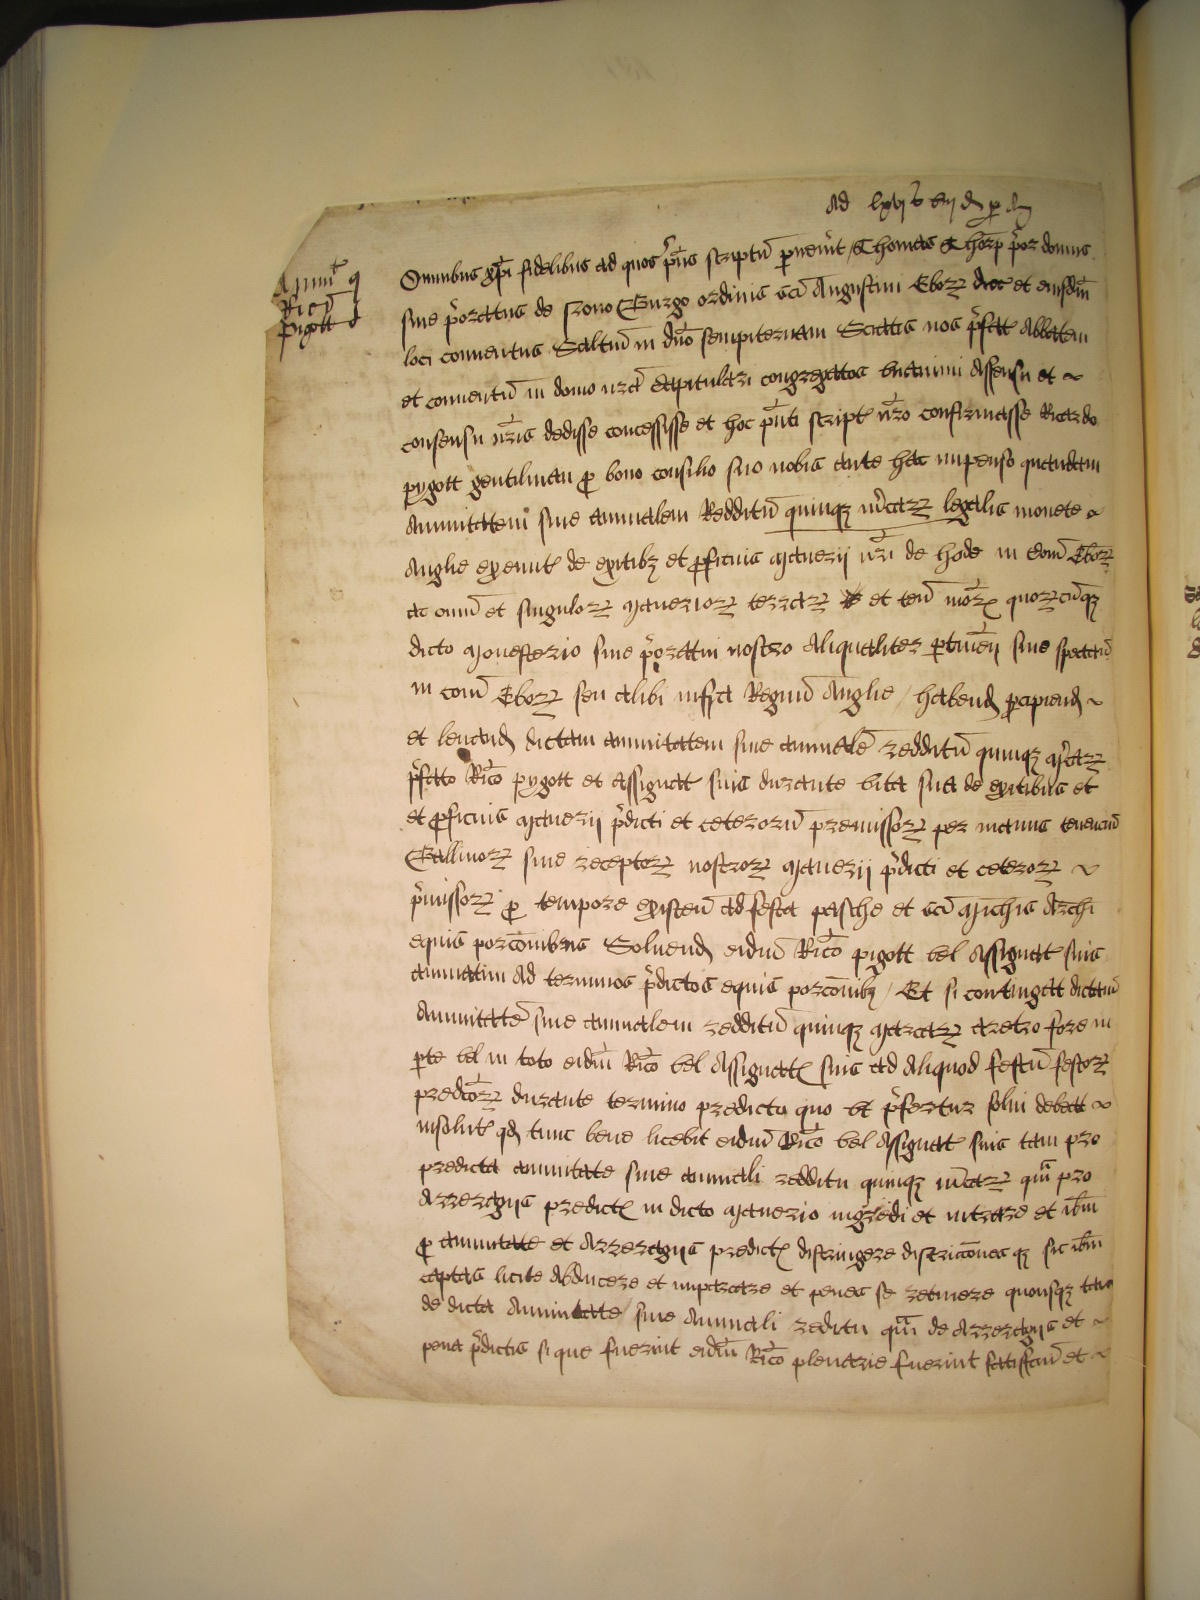 Ad lxvj s viij d
Annuit
Rici
Pigott
Omnibus xpi fidelibus ad quos p'ns scriptu puenit Thomas Thorp p'or domus
sive p'oratus de Novo Burgo ordinis sci Augustini Ebor dioc et eiusdm
loci conventus Saltm in dno sempiternam Sciatis nos p'fat Abbatem
et conventu in domo nra Capitulari congregatos unanimi assensu et
consensu nris dedisse concessisse et hoc p'nti script nro confirmasse Ricardo
pygott gentilman p bono consilio suo nobis ante hac impenso quandam
Annuitatem sive annualem Redditu quinqz m'car legalis monete
Anglie exeunt de exitibz et pficuis Manerij nri de Hode in Com Ebor
ac omn et singulor Manerior terrar et ten nror quorcuqz
dicto Monesterio sive p'oratui nostro Aliqualiter ptinen sive spectan
in com Ebor seu alibi infra Regnu Anglie / habend pcipiend
et levand dictam annuitatem sive annuale redditu quinqz M'car
p'fato Rico pygott et assignat suis durante vita sua de exitibus et
et pficuis Manerij p'dicti et ceteroru premissor per manus tenenciu
Ballivor sive receptor nostror Manerij p'dicti et ceteror
p'missor p tempore existen ad festa pasche et sci Michis Archi
equis porconibus Solvend eidm Rico pigott vel Assignat suis
annuatim ad terminos p'dictos equis porconibz / Et si contingat dictam
Annuitate sive annualem redditu quinqz Marcar aretro fore in
pte vel in toto eidm Rico vel Assignat suis ad Aliquod festu festor
predcor durante termino predicto quo ut p'fertur solvi debeat
insolut qd tunc bene licebit eidm Rico vel Assignat suis tam pro
predicta annuitate sive annuali redditu quinqz m'car qm pro
Arreragijs predict in dicto Manerio ingredi et intrare et ibm
p annuitate et Arreragijs predict distringere districcones qz sic ibm
captas licite abducere et imparcare et penes se retinere quousqz tam
de dicta Annuitate / sive Annuali reditu qm de Arreragijs et
pena p'dictis si que fuerint eidm Rico plenarie fuerint satisfcm et